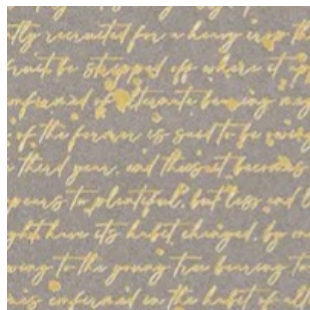 tly recruited for a heavy crop th
fruit be stripped off where it
confirmed of alternate bearing may
of the former is said to be owing
third year, and the suit becomes
pears to plentiful, but less and l
ght have its habit changed, by
wing to the young tree bearing to
is confirmed in the habit of alt